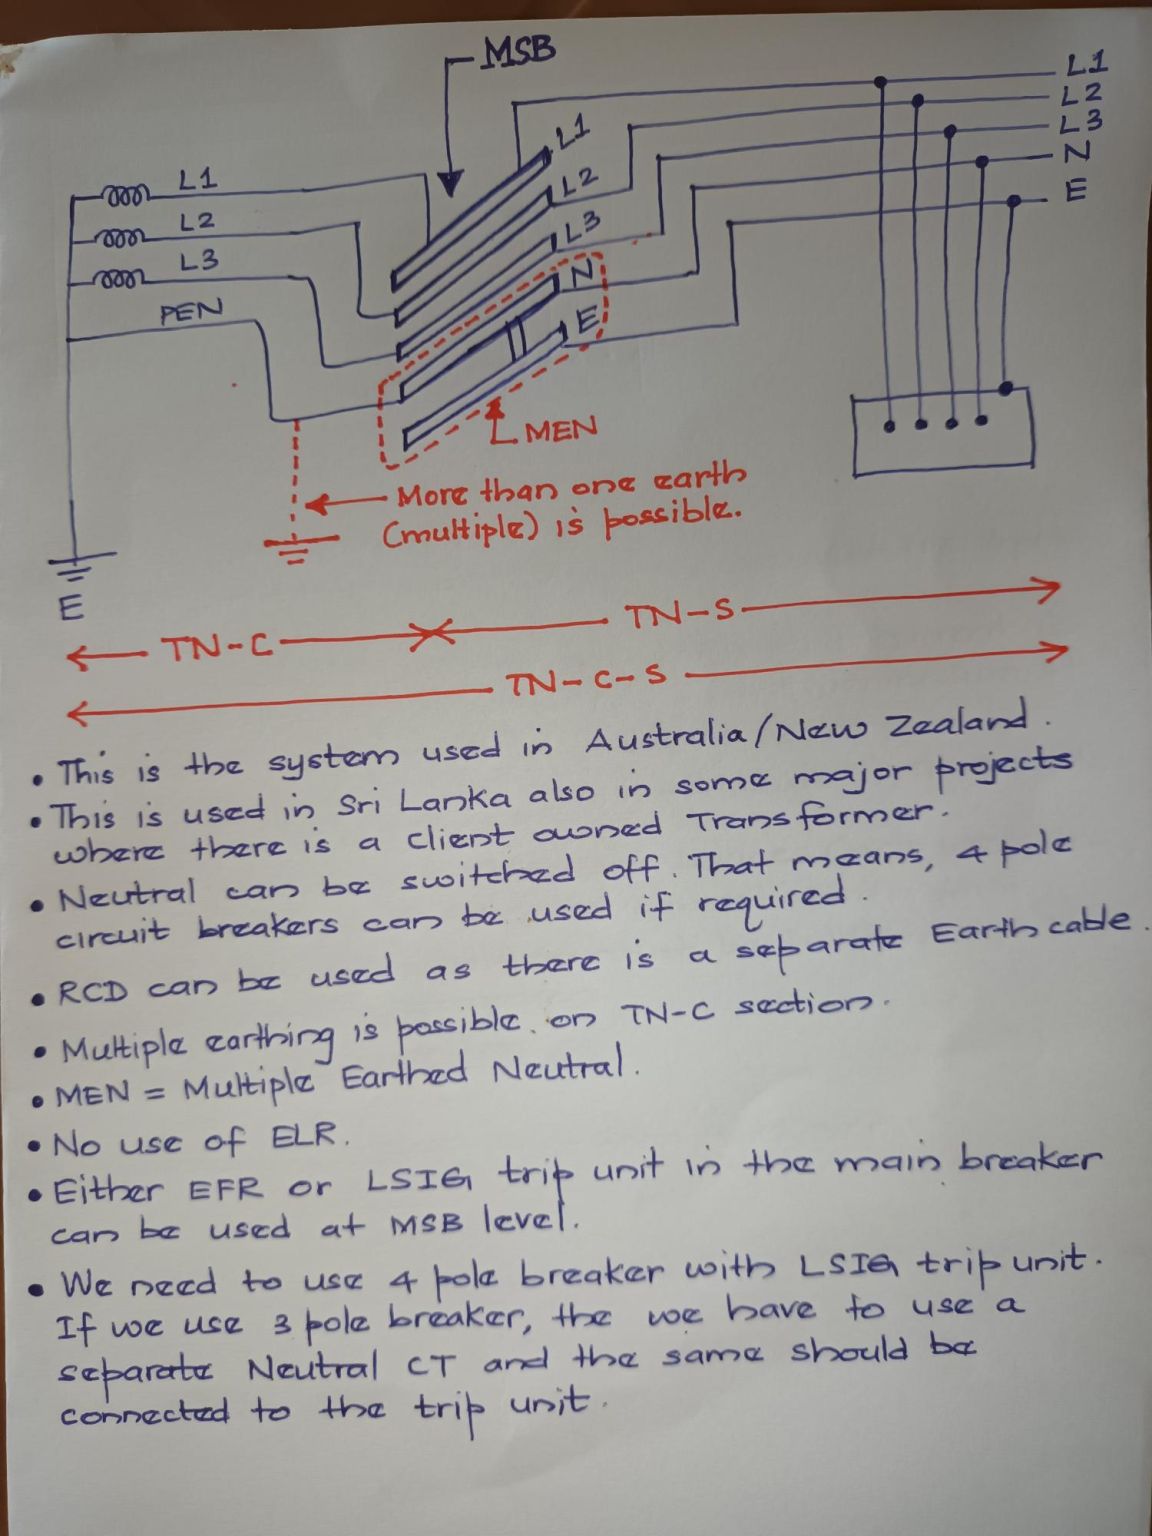 MSB
L1
L2
L3
N
E
L1
L2
L3
PEN
L1
L2
L3
N
E
MEN
More than one earth
(multiple) is possible.
E
TN-C
TN-S
TN-C-S
• This is the system used in Australia/New Zealand.
• This is used in Sri Lanka also in some major projects
where there is a client owned Transformer.
• Neutral can be switched off. That means, 4 pole
circuit breakers can be used if required.
• RCD can be used as there is a separate Earth cable.
• Multiple earthing is possible on TN-C section.
• MEN = Multiple Earthed Neutral.
• No use of ELR.
• Either EFR or LSIG trip unit in the main breaker
can be used at MSB level.
• We need to use 4 pole breaker with LSIG trip unit.
If we use 3 pole breaker, the we have to use a
separate Neutral CT and the same should be
connected to the trip unit.